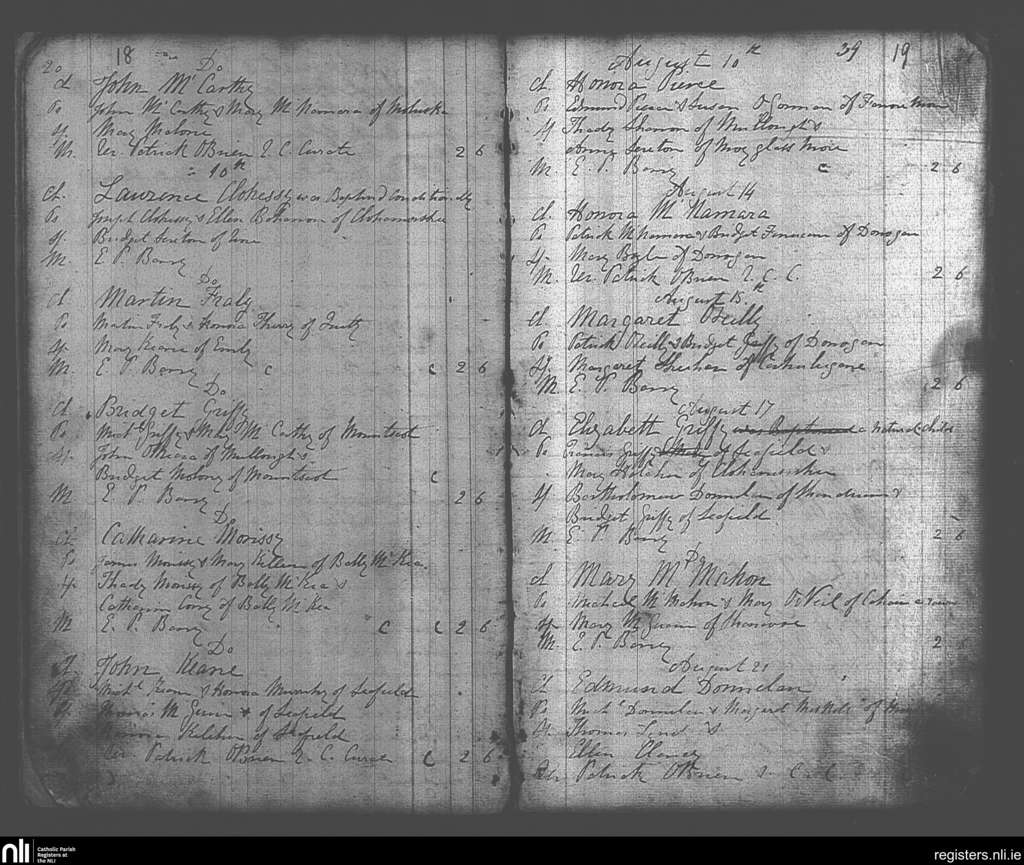 20 18 Do
Ct John Mc Carthy
Ps John Mc Carthy & Mary Mc Namara of
Sp. Mary Malone
M. Rev. Patrick OBrien R. C. Curate 2 6
10th
Ct. Laurence Clohessy was Baptised Conditionally
Ps Joseph Clohessy & Ellen Bohannon of
Sp. Bridget Sexton of
M E. P. Barry
Do
Ct Martin Fraly
Ps Martin Fraly & Honora of
Sp. Mary Keane of Emly
M. E. P. Barry c c 2 6
Do
Ct Bridget Griffy
Ps Michl Griffy & Mary Mc Carthy of Mountscot
Sp. John OMeara of Mullough &
Bridget Molony of Mountscot c
M E. P. Barry 2 6
Do
Ct Catharine Morissy
Ps James Morissy & Mary Killeen of Bally Mc Kea.
Sp. Thady Morissy of Bally Mc Kea &
Catharine of Bally Mc Kea
M E. P. Barry c c 2 6
Do
Ct. John Keane
Michl Keane & Honora of Seafield
of Seafield
of Seafield
Rev. Patrick OBrien R. C. Curate c 2 6
August 10th 39 19
Ct Honora Peirce
Ps Edmund & Susan OGorman of
Sp Thady Shannon of Mullough &
Anne Sexton of Moyglass more
M. E. P. Barry c 2 6
August 14
Ct. Honora Mc Namara
Ps Patrick Mc Namara & Bridget of Donogan
Sp. Mary Boyle of Donogan
M. Rev. Patrick OBrien R. C. C. 2 6
August 15th
Ct. Margaret OReilly
Ps Patrick OReilly & Bridget Griffy of Donogan
Sp. Margaret of
M E. P. Barry 2 6
August 17
Ct Elizabeth Griffy was Baptised a natural child
Ps Francis Griffy of Seafield &
Mary of
Sp Bartholomew Donnelan of &
Bridget Griffy of Seafield
M E. P. Barry 2 6
Do
Ct Mary Mc Mahon
Ps Michael Mc Mahon & Mary ONeil of
Sp Mary of
M. E. P. Barry 2 6
August 21
Ct Edmund Donnelan
Ps Michl Donnelan & Margaret of
Sp. Thomas &
Ellen Clancy
Rev Patrick OBrien R. C. C.
nli Catholic Parish
Registers at
the NLI
registers.nli.ie